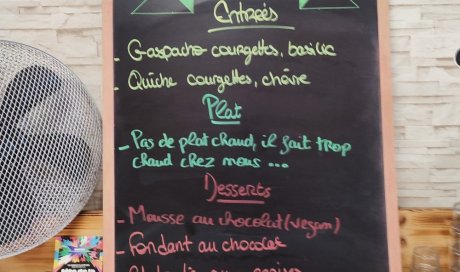 Entrées
- Gaspacho courgettes, basilic
- Quiche courgettes, chèvre
Plat
- Pas de plat chaud, il fait trop
chaud chez nous...
Desserts
- Mousse au chocolat (vegan)
- Fondant au chocolat